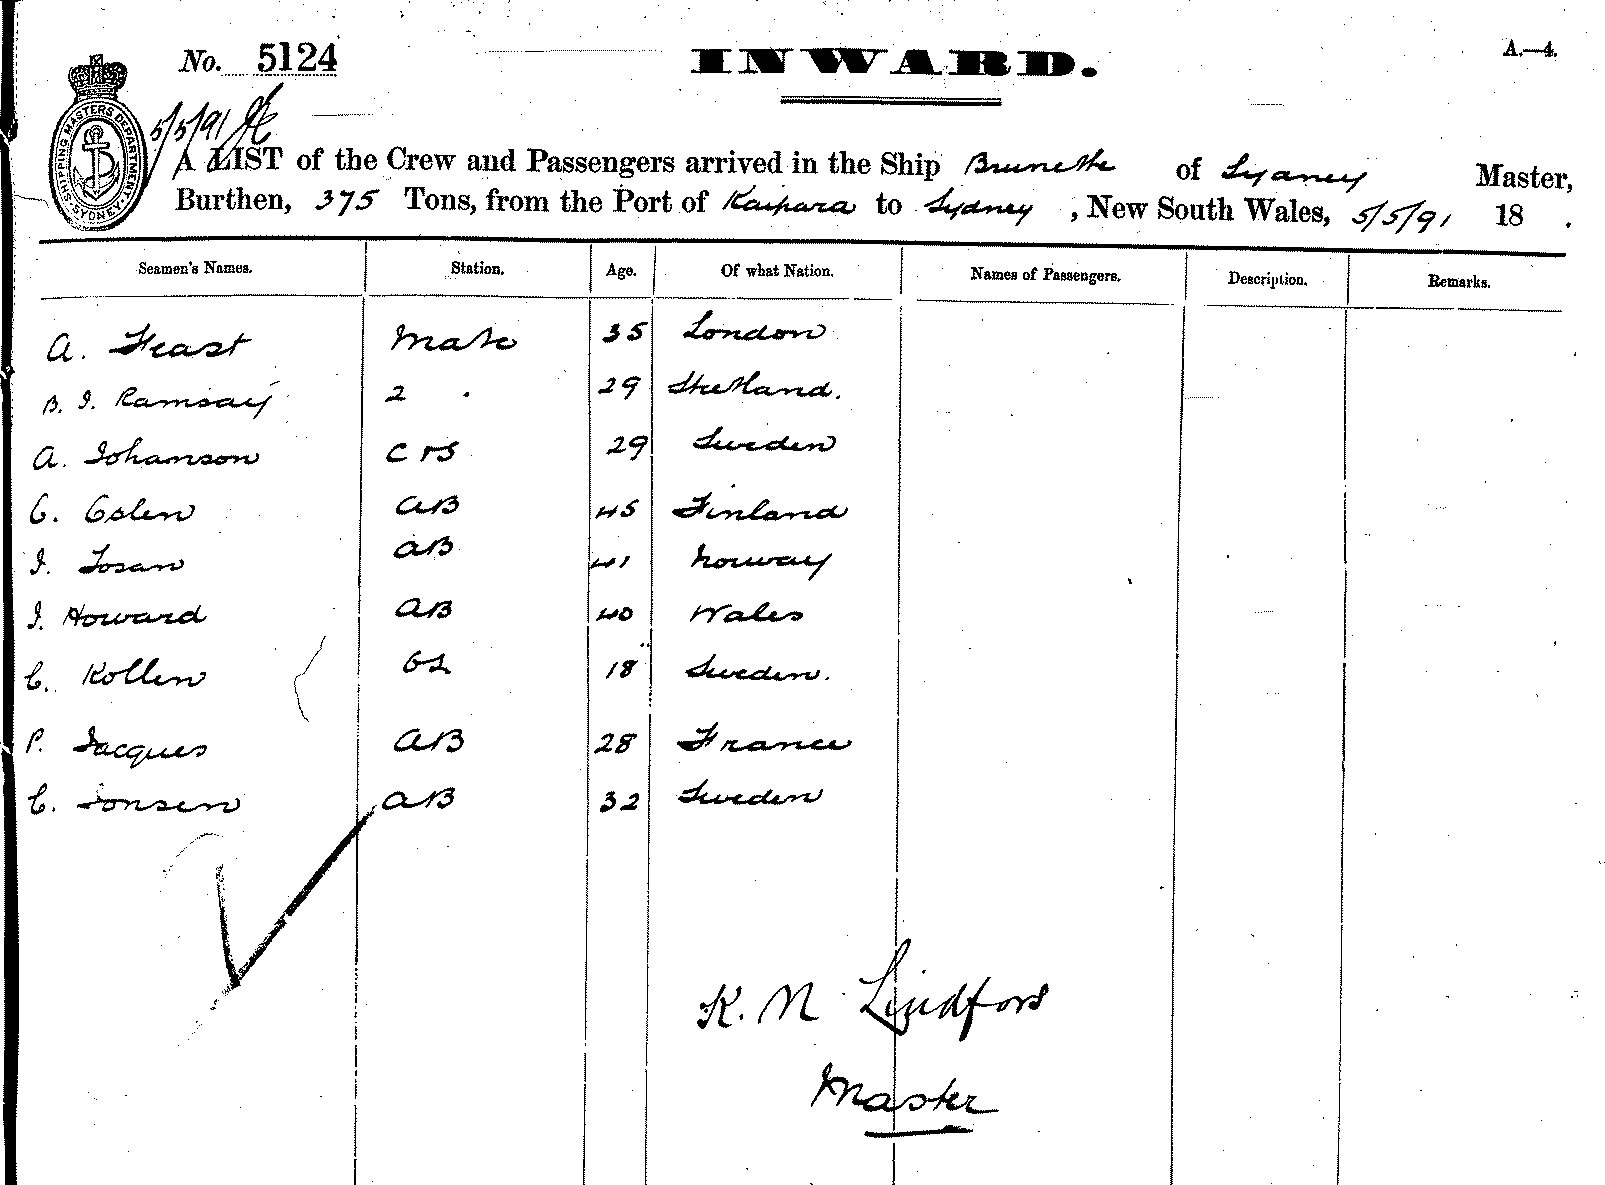 No. 5124
INWARD.
A.—4.
SHIPPING MASTERS DEPARTMENT SYDNEY
5/5/91
A LIST of the Crew and Passengers arrived in the Ship Brunette of Sydney Master,
Burthen, 375 Tons, from the Port of Kaipara to Sydney, New South Wales, 5/5/91 18 .
Seamen's Names. Station. Age. Of what Nation. Names of Passengers. Description. Remarks.
A. Feast Mate 35 London
B. J. Ramsay 2 . 29 Shetland.
A. Johanson C & S 29 Sweden
C. AB 45 Finland
J. AB 41 Norway
J. Howard AB 40 Wales
C. Kollen OS 18 Sweden.
P. Jacques AB 28 France
C. Jonsen AB 32 Sweden
K. N Lindfors
Master